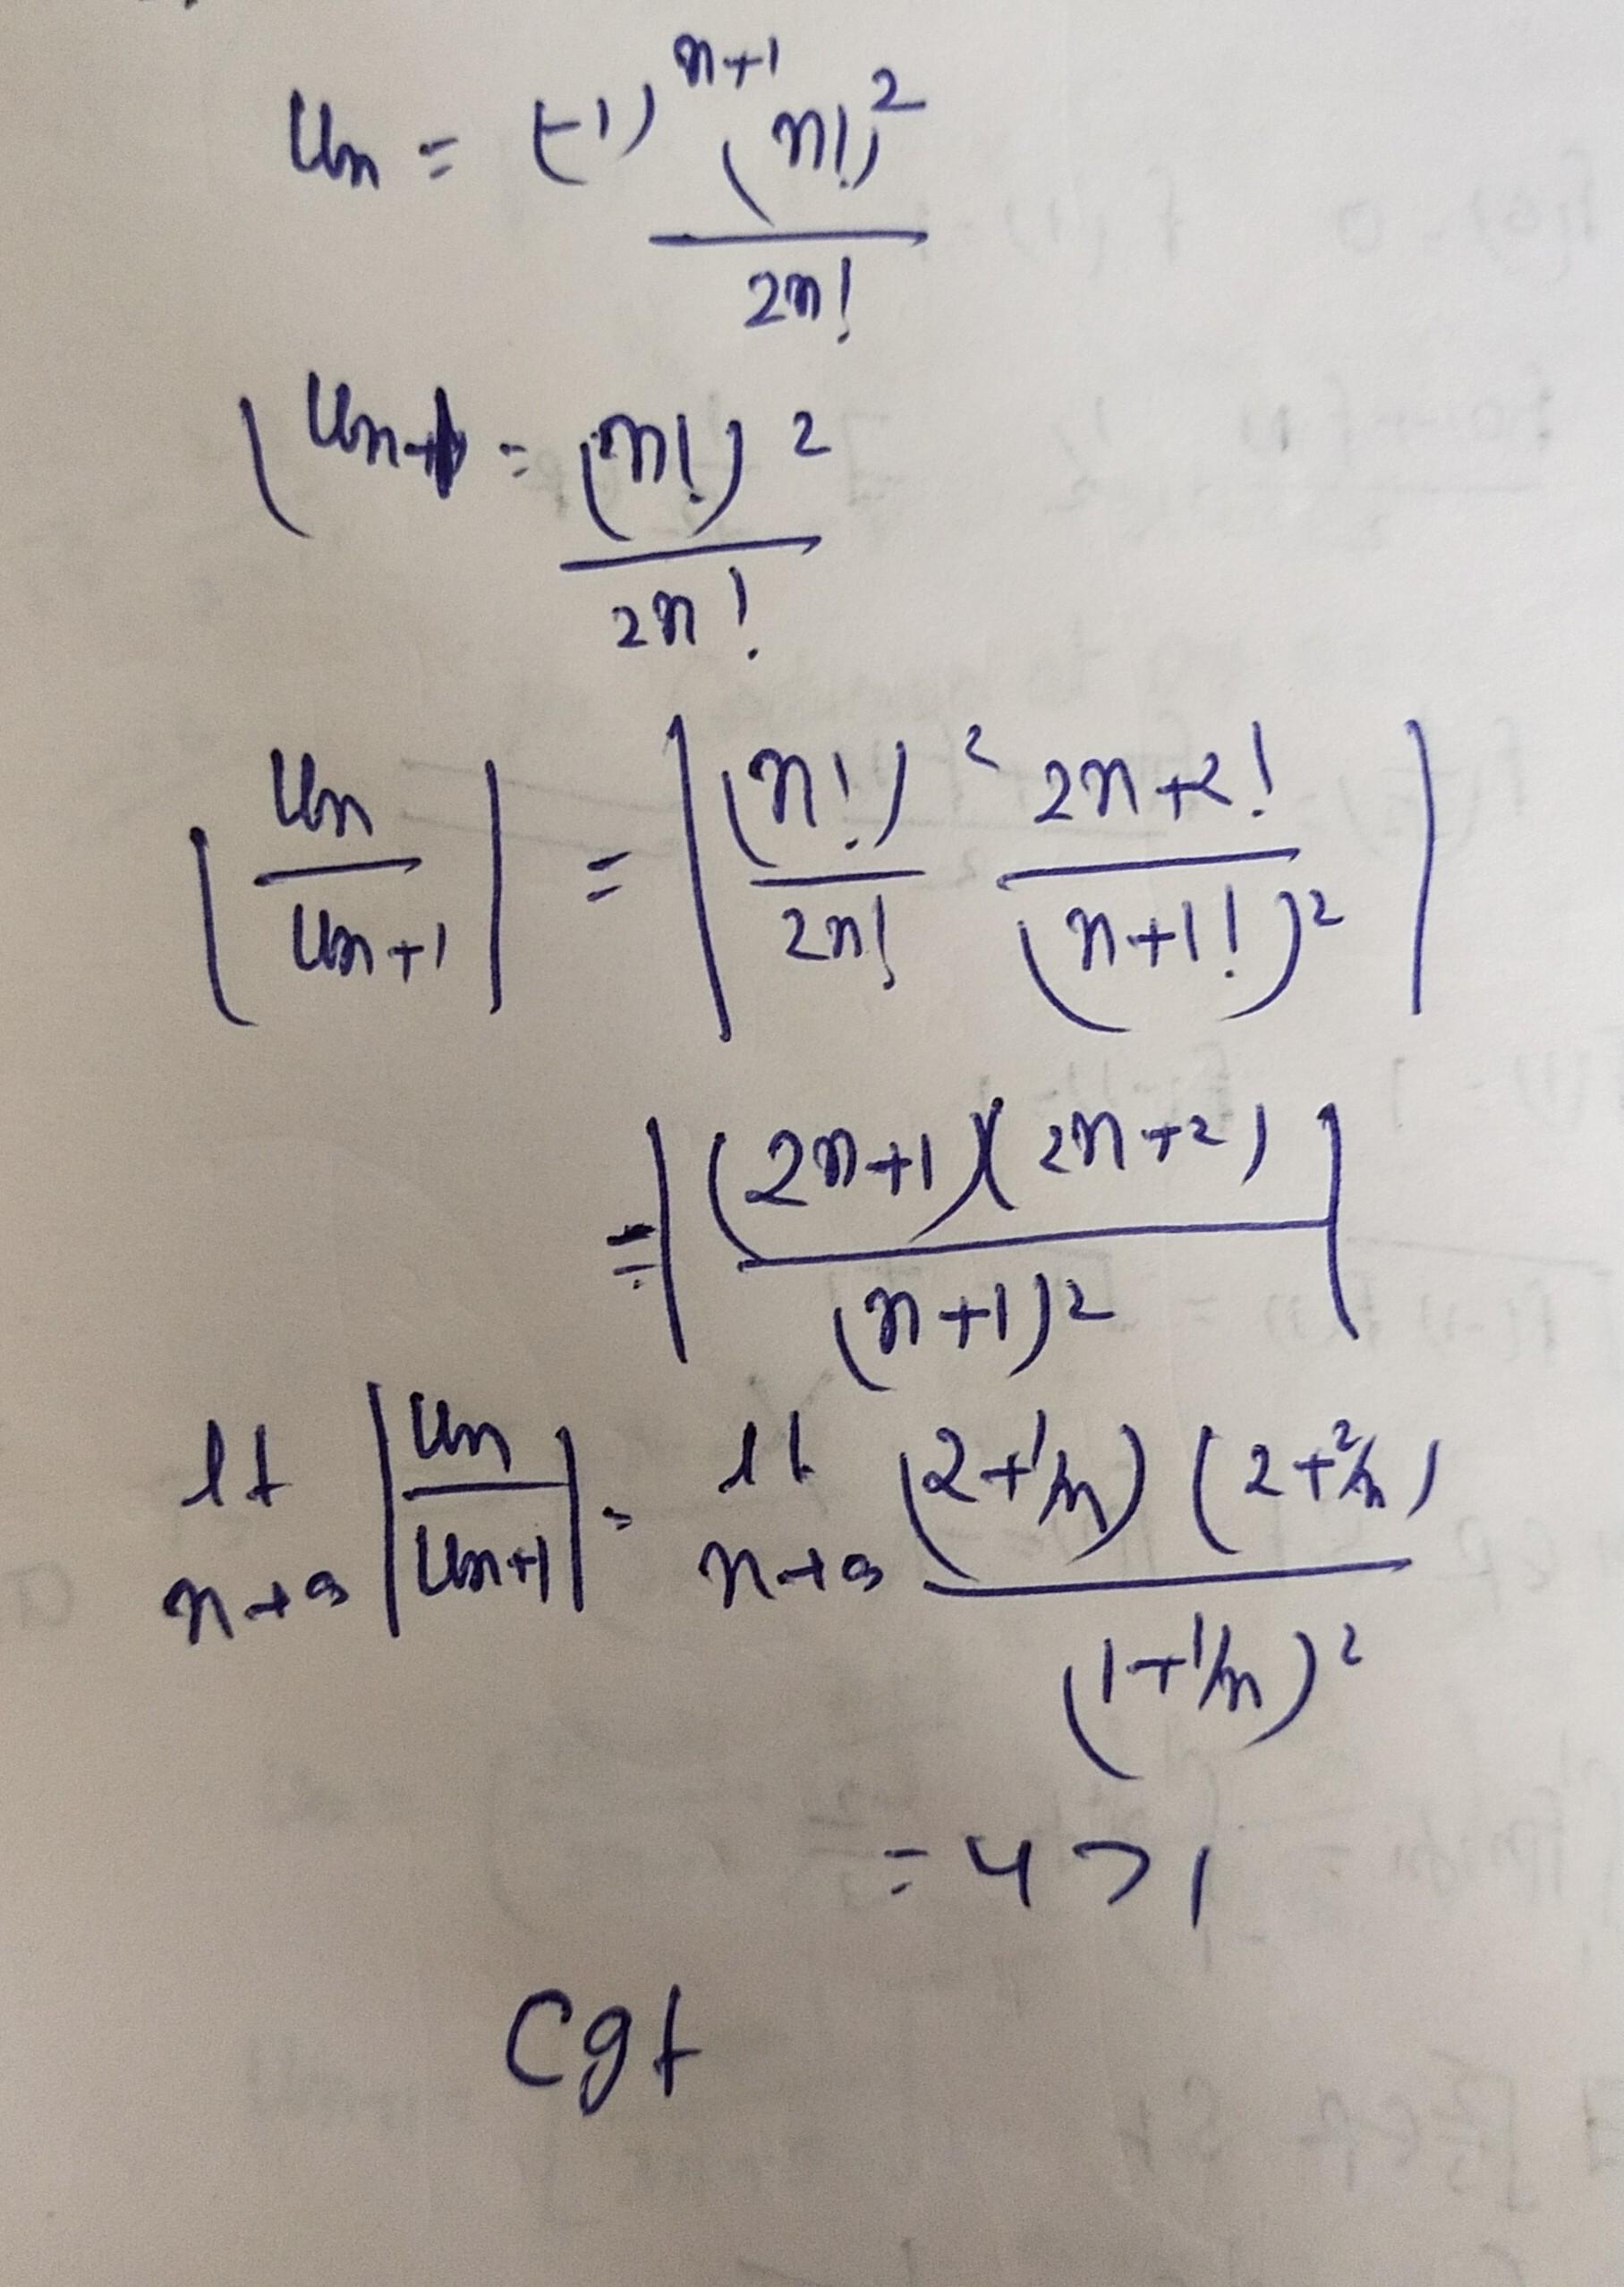 Un = (-1)^{n+1} (n!)^2 / 2n!
|Un| = (n!)^2 / 2n!
|Un / Un+1| = |(n!)^2 / 2n! · 2n+2! / (n+1!)^2|
= |(2n+1)(2n+2) / (n+1)^2|
lt n→∞ |Un / Un+1| = lt n→∞ (2+1/n)(2+2/n) / (1+1/n)^2
= 4 > 1
Cgt